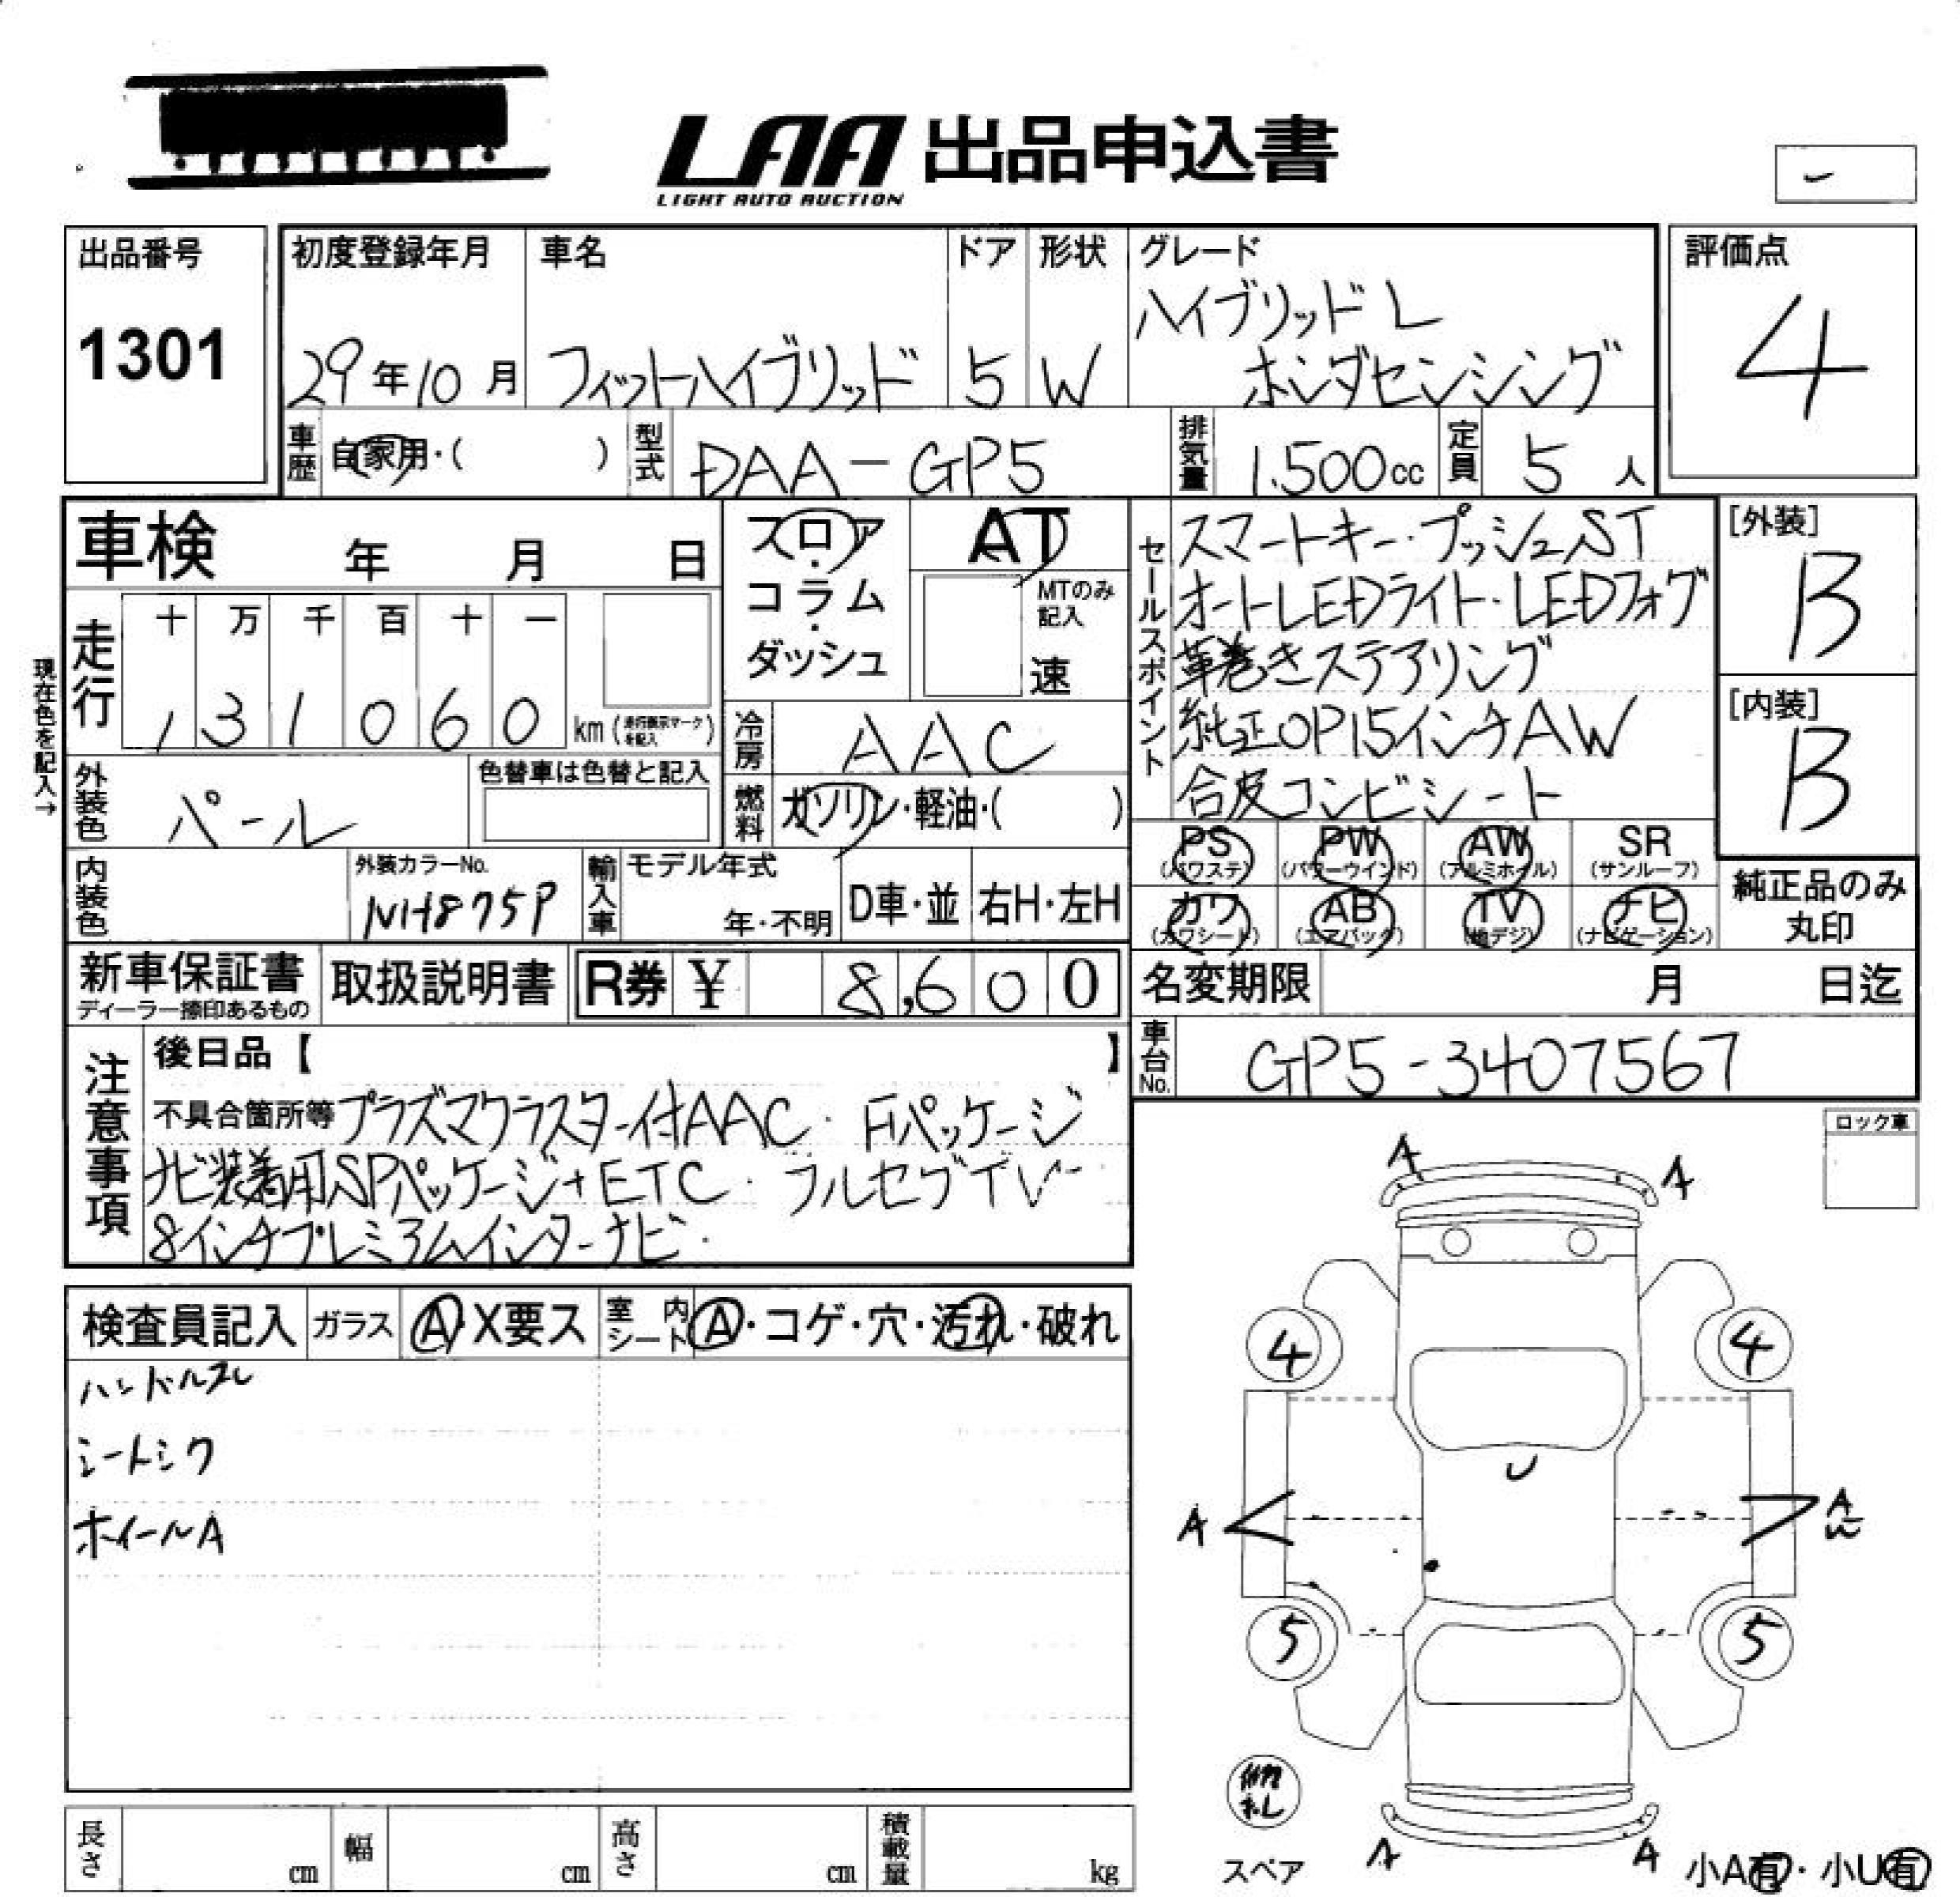 LAA 出品申込書
LIGHT AUTO AUCTION
出品番号
1301
初度登録年月
29年10月
車名
フィットハイブリッド
ドア
5
形状
W
グレード
ハイブリッドL
ホンダセンシング
評価点
4
車歴 自家用・( )
型式 DAA-GP5
排気量 1.500cc
定員 5人
車検 年 月 日
フロア・コラム・ダッシュ
AT
MTのみ記入
速
走行
十 万 千 百 十 一
1 3 1 0 6 0 km (走行表示マークを記入)
現在色を記入→
冷房 AAC
外装色 パール
色替車は色替と記入
燃料 ガソリン・軽油・( )
内装色
外装カラーNo.
NH875P
輸入車 モデル年式
年・不明
D車・並
右H・左H
セールスポイント
スマートキー・プッシュST
オートLEDライト・LEDフォグ
革巻きステアリング
純正OP15インチAW
合皮コンビシート
[外装]
B
[内装]
B
PS (パワステ)
PW (パワーウインド)
AW (アルミホイル)
SR (サンルーフ)
カワ (カワシート)
AB (エアバック)
TV (地デジ)
ナビ (ナビゲーション)
純正品のみ丸印
新車保証書
ディーラー捺印あるもの
取扱説明書
R券 ¥ 8,600
名変期限 月 日迄
車台No. GP5-3407567
注意事項
後日品【 】
不具合箇所等 プラズマクラスター付AAC・Fパッケージ
ナビ装着用SPパッケージ+ETC・フルセグTV
8インチプレミアムインターナビ・
ロック車
検査員記入
ガラス A・X要ス
室内シート A・コゲ・穴・汚れ・破れ
ハンドルスレ
シートシワ
ホイールA
A A
4 4
U
A A
5 5
スペア
A A
小A有・小U有
長さ cm
幅 cm
高さ cm
積載量 kg